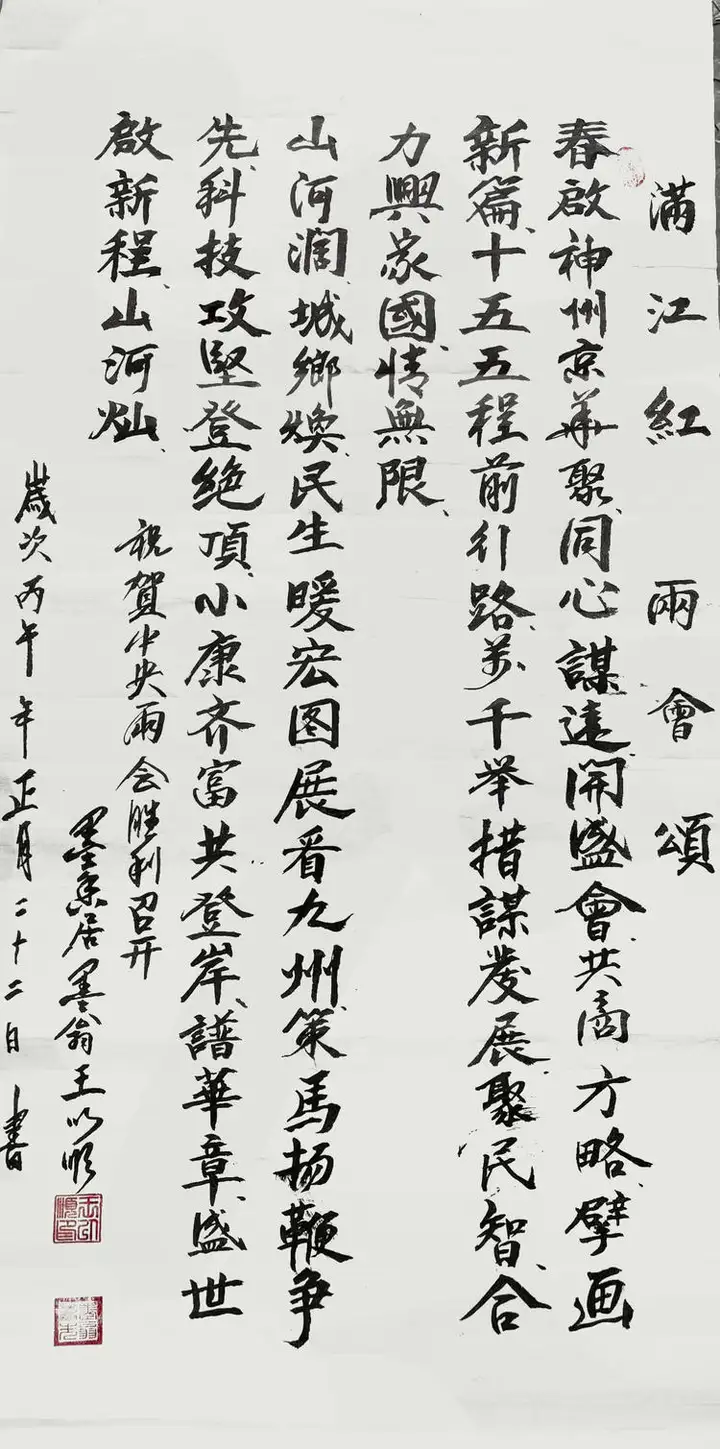 滿江紅 兩會頌
春啟神州京華聚、同心謀遠、開盛會、共商方略、擘画
新篇、十五五程前行路、萬千举措謀發展、聚民智、合
力興家國情無限、
山河润、城鄉焕、民生暖宏图展看九州策馬扬鞭争
先、科技攻堅登绝頂、小康齐富共登岸、譜華章、盛世
啟新程、山河灿、
祝賀中央兩会胜利召开
墨香居墨翁王以顺
歲次丙午年正月二十二日書